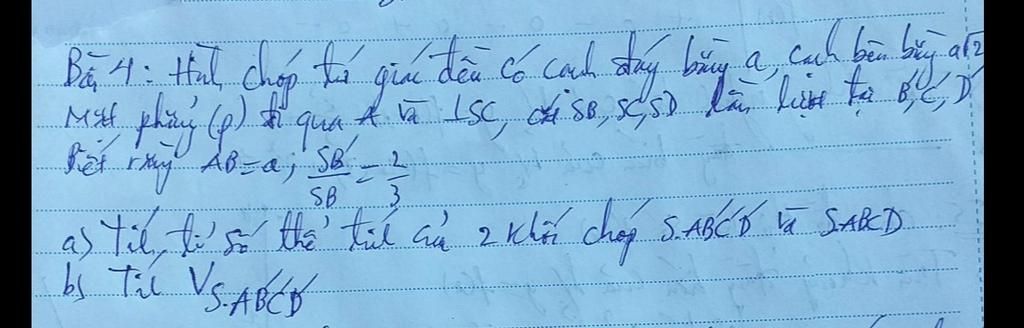 Bài 4: Hình chóp tứ giác đều có cạnh đáy bằng a, cạnh bên bằng a√2
Mặt phẳng (P) đi qua A và ⊥SC, cắt SB, SC, SD lần lượt tại B', C', D'
Biết rằng AB = a; SB'/SB = 2/3
a) Tính tỉ số thể tích của 2 khối chóp S.AB'C'D' và S.ABCD
b) Tính V S.AB'C'D'